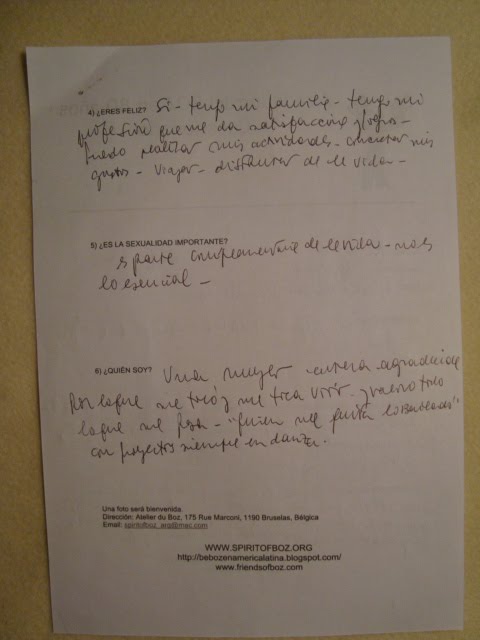 4) ¿ERES FELIZ? Si - tengo mi familia - tengo mi
profesión que me da satisfacciones y logros -
puedo realizar mis actividades - concretar mis
gustos - viajar - disfrutar de la vida -
5) ¿ES LA SEXUALIDAD IMPORTANTE?
es parte complementaria de la vida - no es
lo esencial -
6) ¿QUIÉN SOY? Una mujer entera agradecida
Por lo que me tocó y me toca vivir. y valoro todo
lo que me pasa - "quien me quita lo bailado"
con proyectos siempre en danza.
Una foto será bienvenida.
Dirección: Atelier du Boz, 175 Rue Marconi, 1190 Bruselas, Bélgica
Email: spiritofboz_arg@mac.com
WWW.SPIRITOFBOZ.ORG
http://bebozenamericalatina.blogspot.com/
www.friendsofboz.com